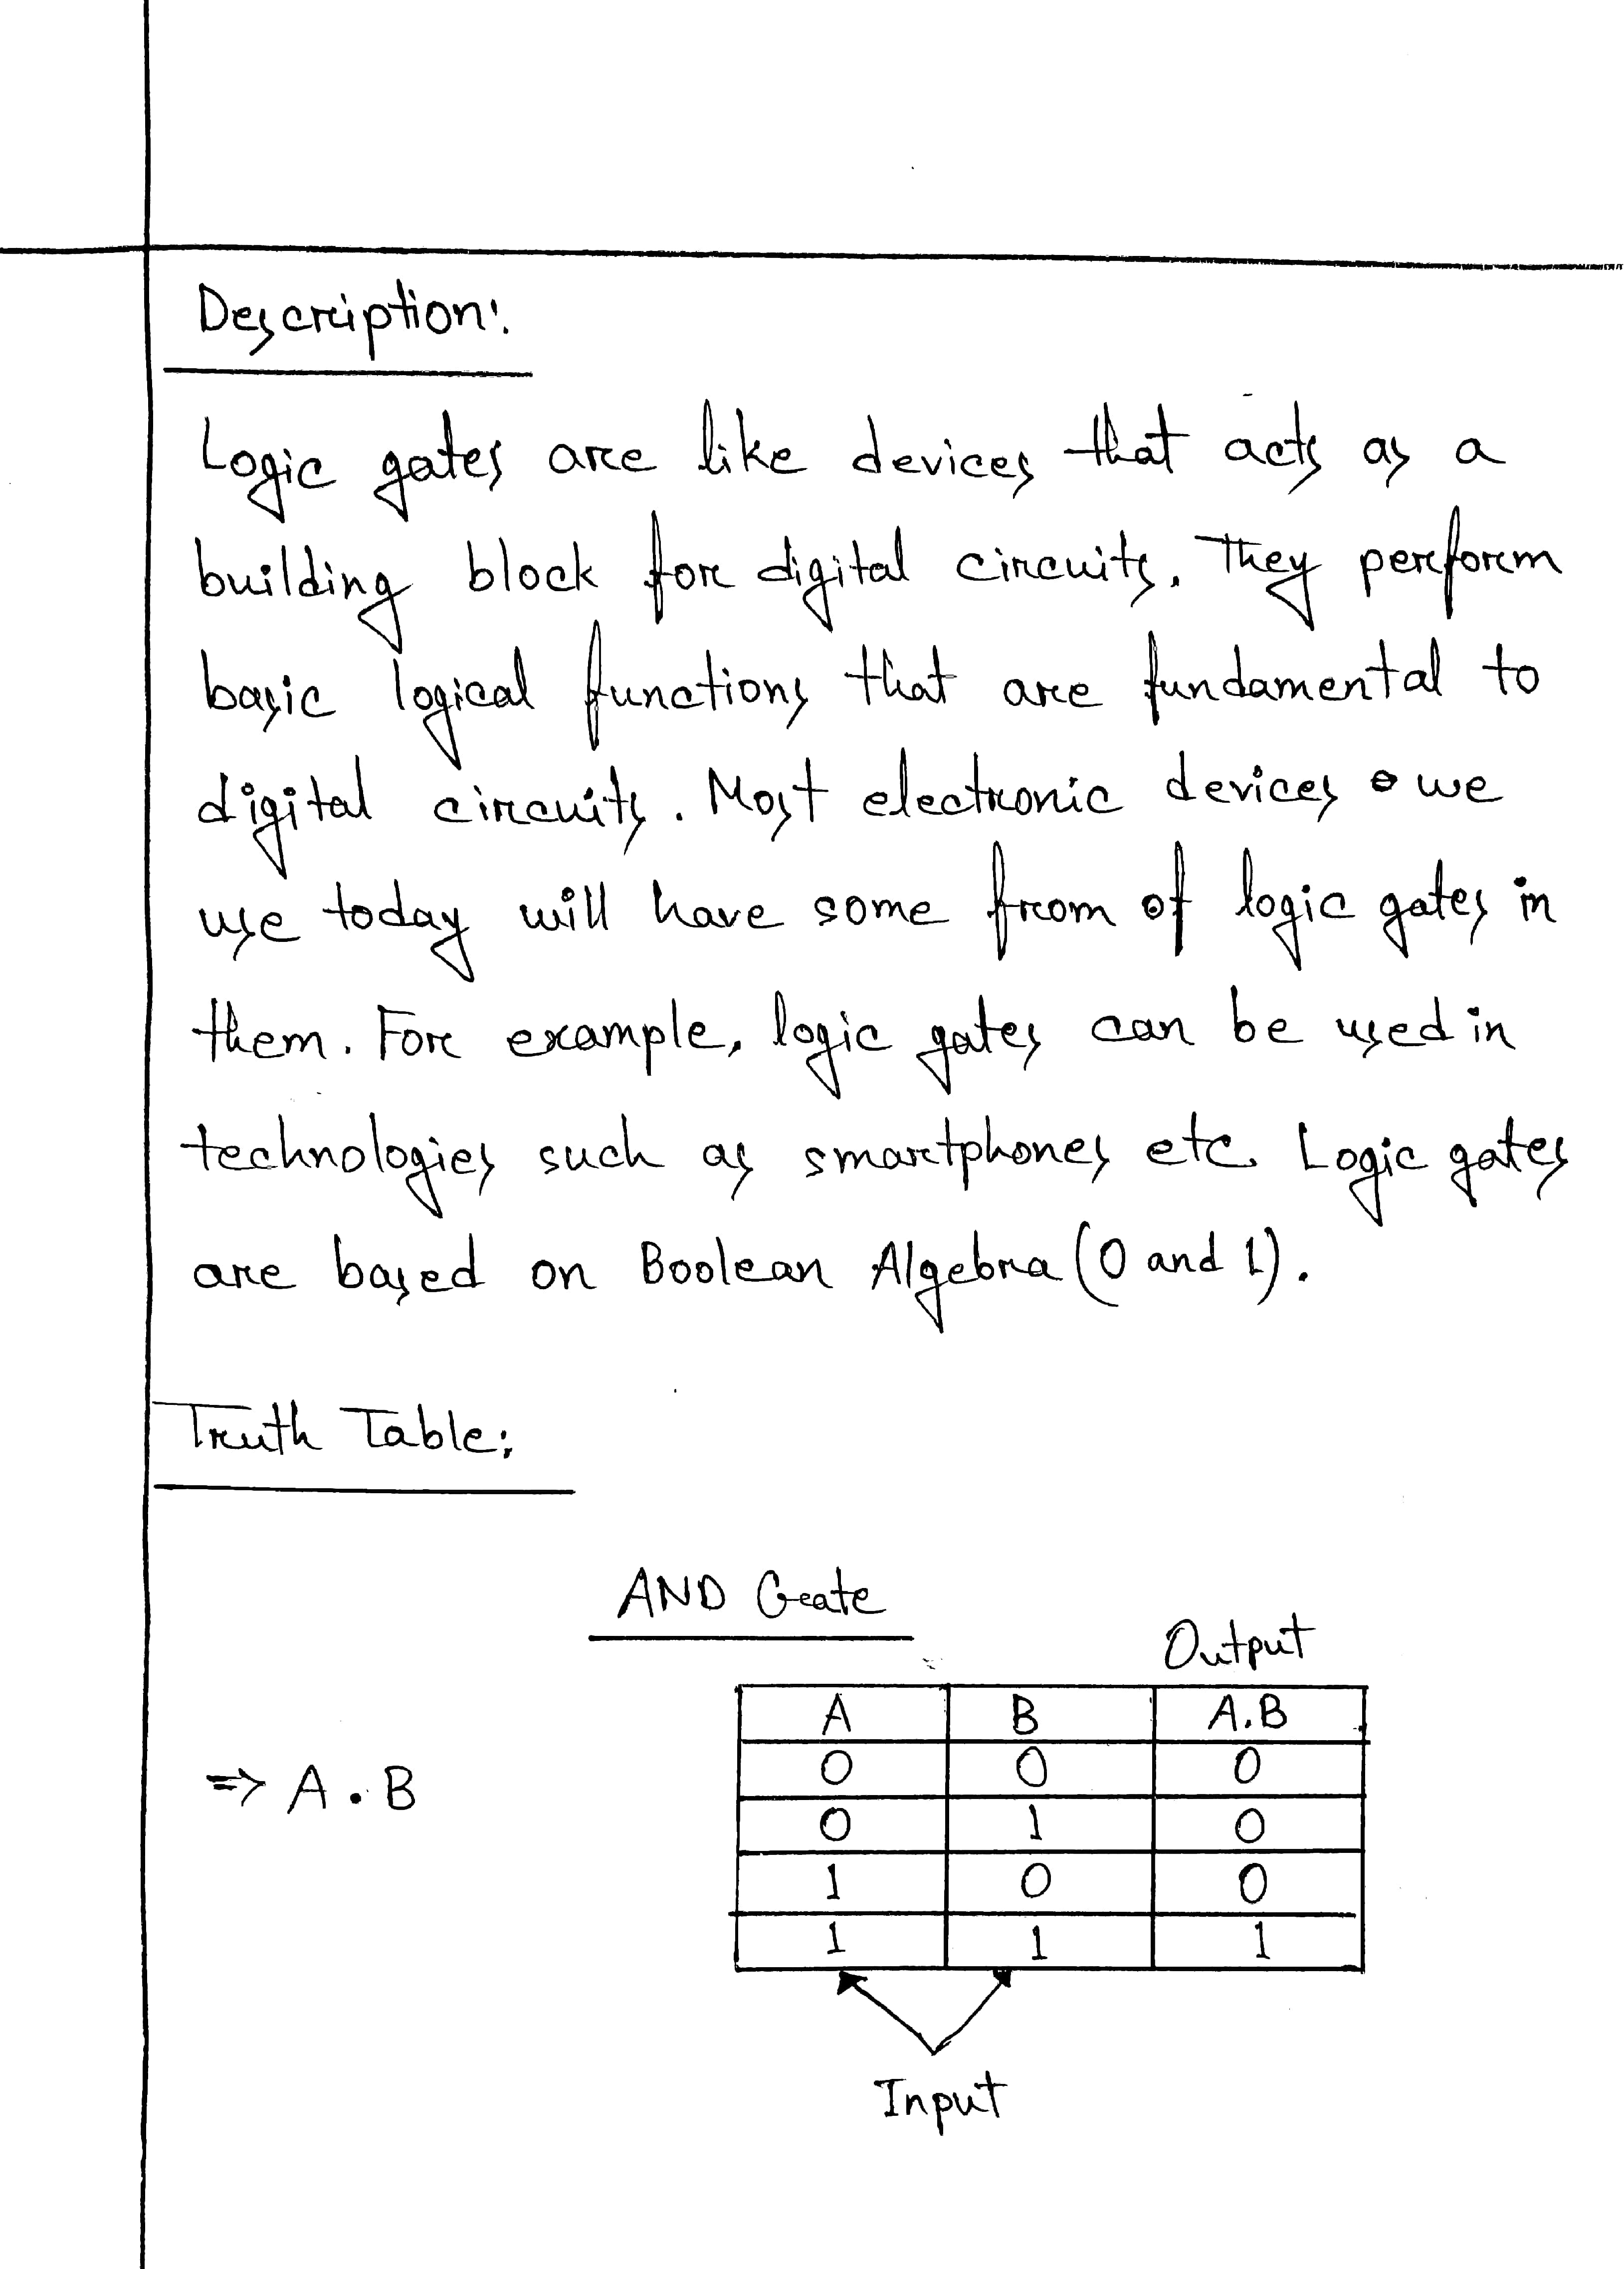 Description:
Logic gates are like devices that acts as a
building block for digital circuits. They perform
basic logical functions that are fundamental to
digital circuits. Most electronic devices we
use today will have some from of logic gates in
them. For example, logic gates can be used in
technologies such as smartphones etc. Logic gates
are based on Boolean Algebra (0 and 1).
Truth Table:
AND Gate
Output
A B A.B
0 0 0
⇒ A . B
0 1 0
1 0 0
1 1 1
Input